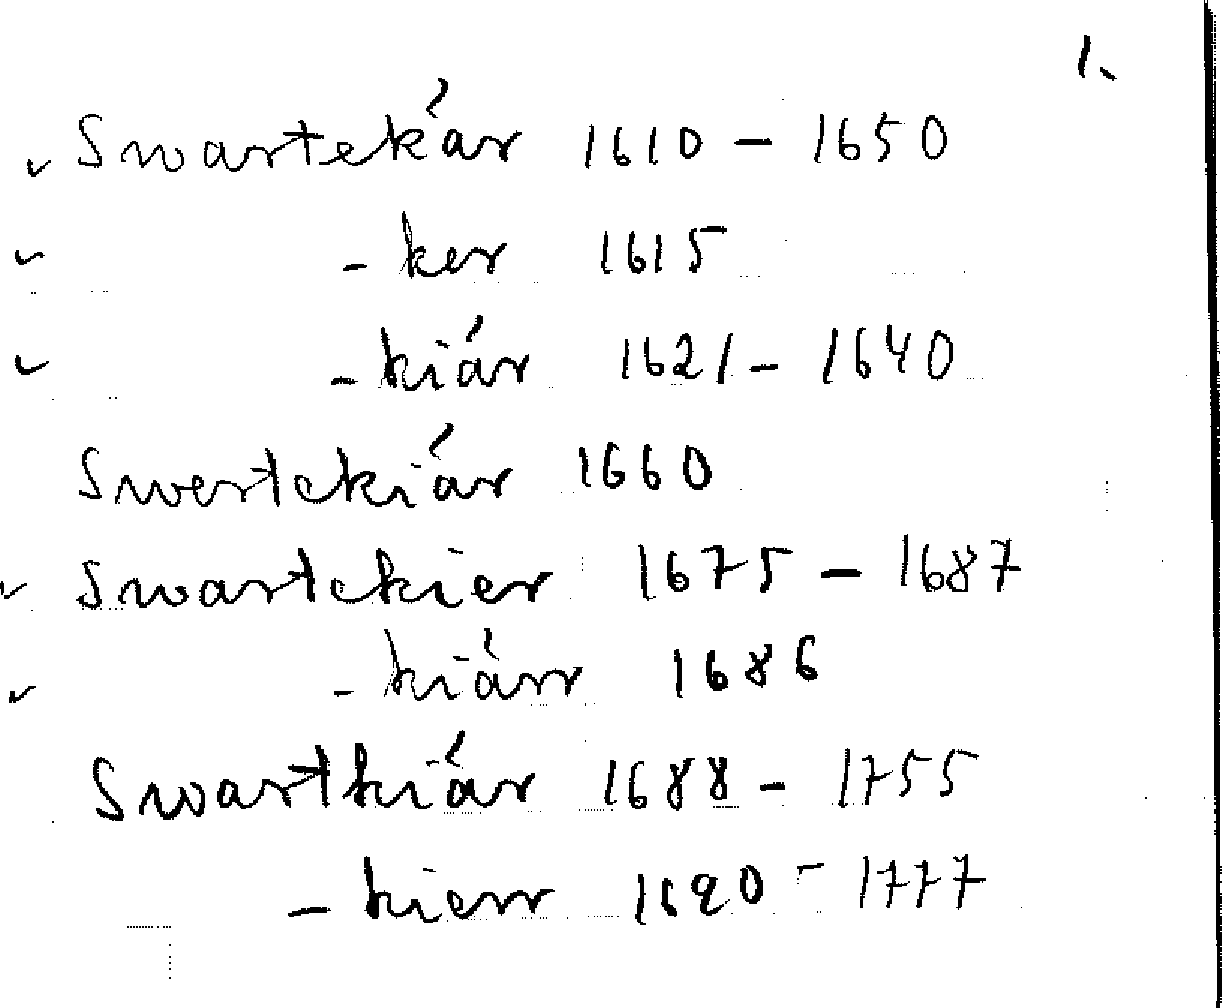 1.
✓ Swartekár 1610 – 1650
✓ – ker 1615
✓ – kiár 1621 – 1640
Swertekiár 1660
✓ Swartekier 1675 – 1687
✓ – kiárr 1686
Swartkiár 1688 – 1755
– kierr 1690 – 1777